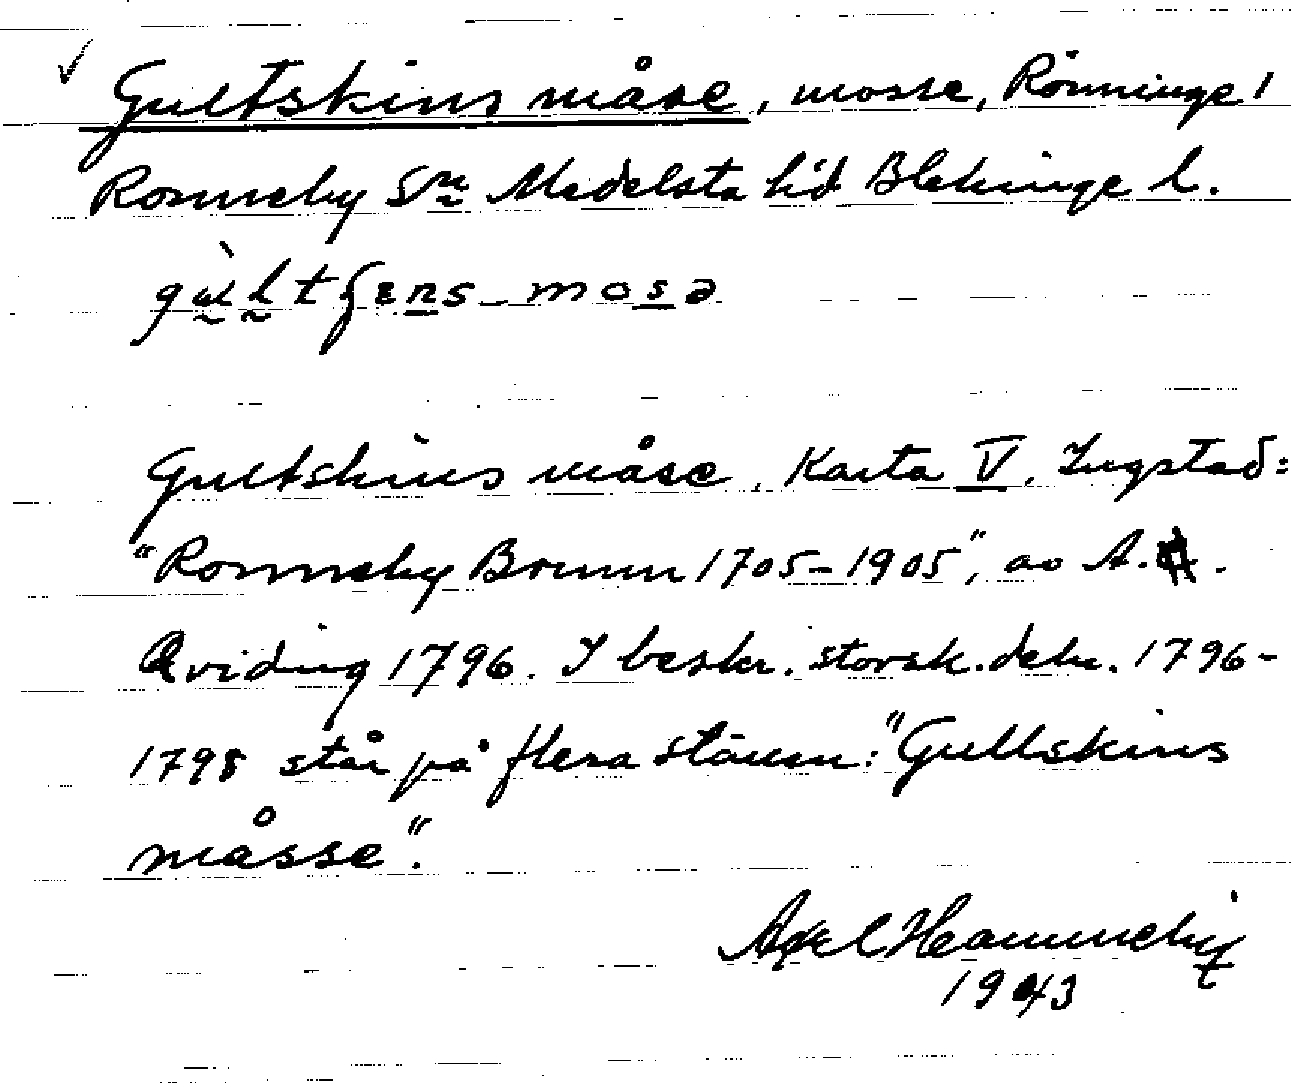 Gultskins måse, mosse, Rönninge 1
Ronneby Sn Medelsta hd Blekinge l.
Gultskins måse, Karta V, Ingstad:
"Ronneby Brunn 1705-1905", av A.
Qviding 1796. I beskr. storsk.dehn. 1796-
1798 står på flera ställen: "Gullskins
måsse".
Axel
1943